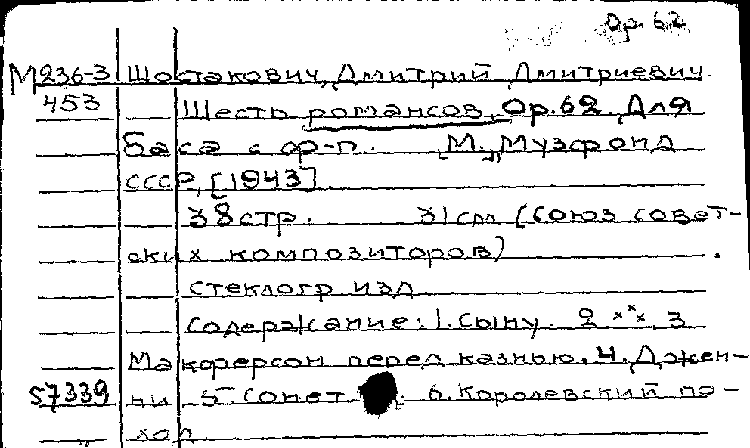 Op. 62
М236-3 Шостакович, Дмитрий Дмитриевич
453 Шесть романсов, Op. 62. Для
баса с ф-п. М., Музфонд
СССР, [1943]
38 стр. 31 см (Союз совет-
ских композиторов)
стеклогр изд
Содержание: 1. Сыну. 2 ××× 3
Макферсон перед казнью. 4. Джен-
57339 ни 5 Сонет 6. Королевский по-
ход